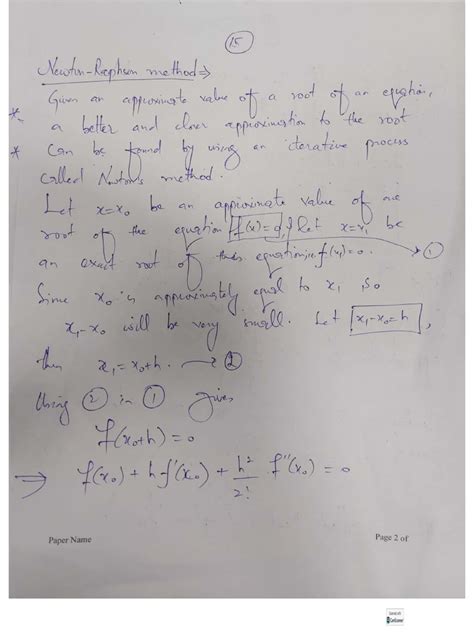 15
Newton-Raphson method ⇒
Given an approximate value of a root of an equation,
* a better and closer approximation to the root
* Can be found by using an iterative process
Called Newton's method.
Let x=x₀ be an approximate value of one
root of the equation f(x)=0, & let x=x₁ be
an exact root of this equation i.e. f(x₁)=0. → ①
Since x₀ is approximately equal to x₁, so
x₁-x₀ will be very small. Let x₁-x₀=h,
then x₁=x₀+h. → ②
Using ② in ① gives
f(x₀+h)=0
⇒ f(x₀) + h f'(x₀) + h²/2! f''(x₀) = 0
Paper Name Page 2 of
CamScanner